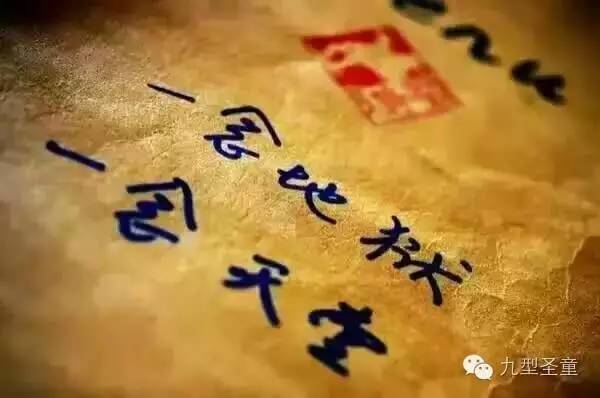 一念地狱
一念天堂
九型圣童